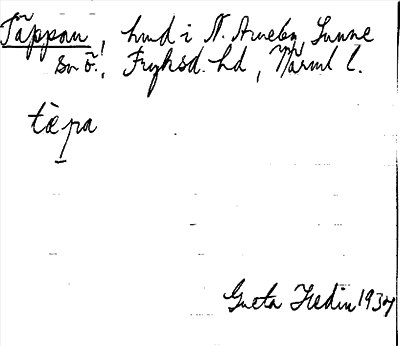 Täppan, hmd i N. Arneby, Sunne
sn ö., Fryksd. hd, Värml l.
tæpa
Greta Hedin 1934